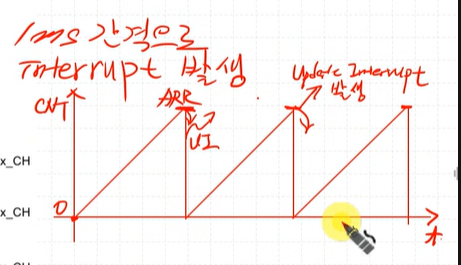 1ms 간격으로
Interrupt 발생
CNT
ARR
UI
Update Interrupt
발생
x_CH
x_CH
0
t